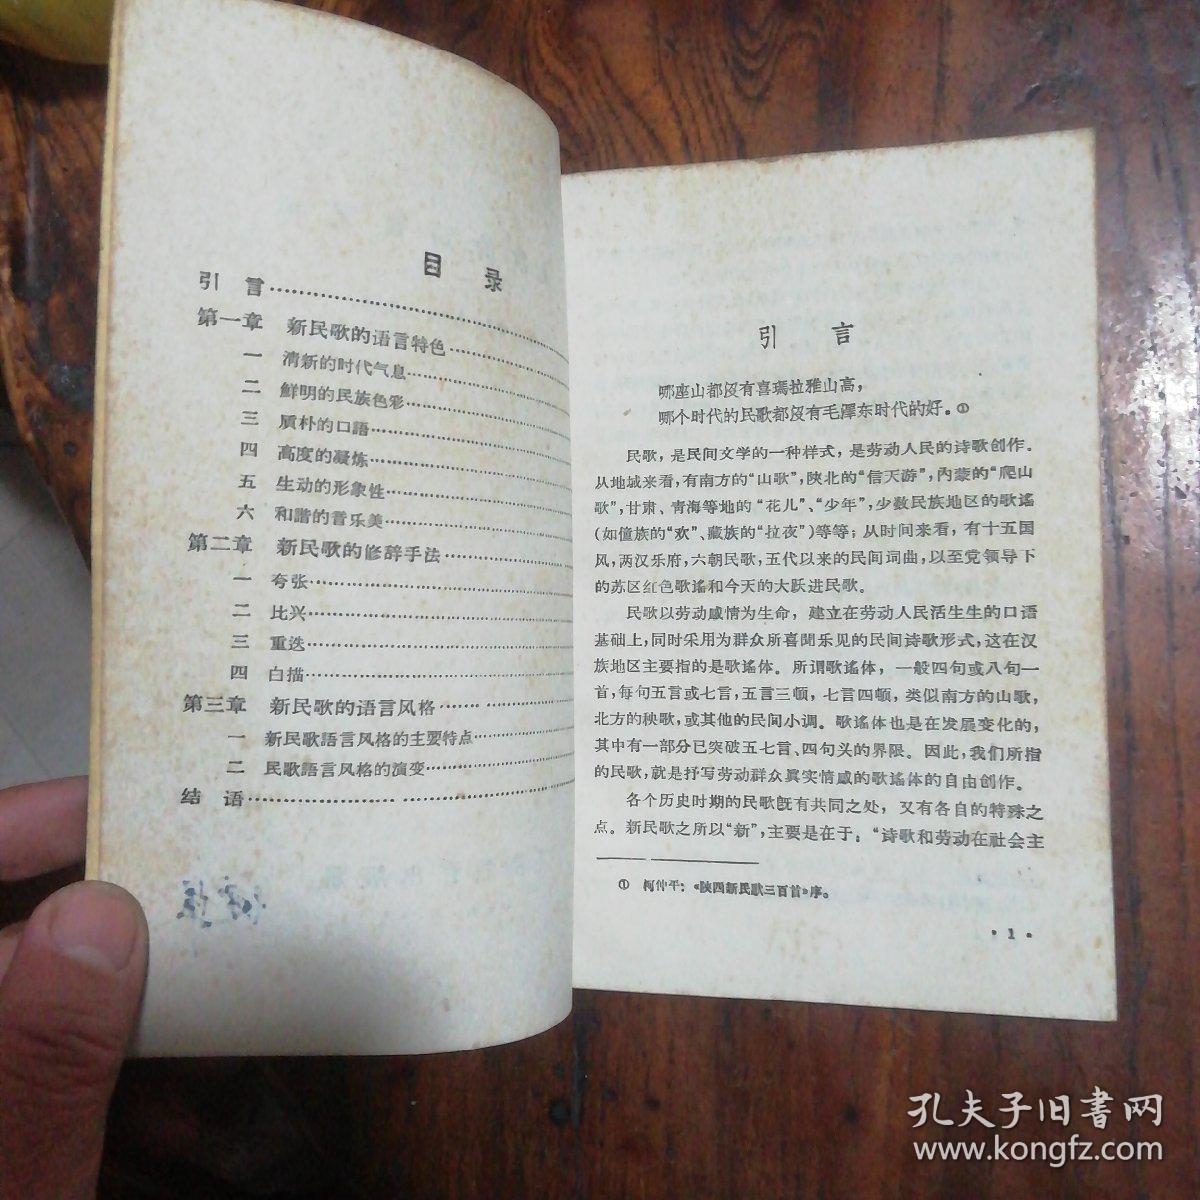 目 录
引 言
第一章 新民歌的语言特色
一 清新的时代气息
二 鮮明的民族色彩
三 质朴的口語
四 高度的凝炼
五 生动的形象性
六 和諧的音乐美
第二章 新民歌的修辞手法
一 夸张
二 比兴
三 重迭
四 白描
第三章 新民歌的语言风格
一 新民歌語言风格的主要特点
二 民歌語言风格的演变
结 语
引 言
哪座山都沒有喜瑪拉雅山高，
哪个时代的民歌都沒有毛澤东时代的好。①
民歌，是民间文学的一种样式，是劳动人民的诗歌创作。
从地域来看，有南方的“山歌”，陕北的“信天游”，內蒙的“爬山
歌”，甘肃、青海等地的“花儿”、“少年”，少数民族地区的歌谣
(如僮族的“欢”、藏族的“拉夜”)等等；从时间来看，有十五国
风，两汉乐府，六朝民歌，五代以来的民间词曲，以至党领导下
的苏区红色歌谣和今天的大跃进民歌。
民歌以劳动感情为生命，建立在劳动人民活生生的口语
基础上，同时采用为群众所喜聞乐见的民间诗歌形式，这在汉
族地区主要指的是歌谣体。所谓歌谣体，一般四句或八句一
首，每句五言或七言，五言三顿，七言四顿，类似南方的山歌，
北方的秧歌，或其他的民间小调。歌谣体也是在发展变化的，
其中有一部分已突破五七言、四句头的界限。因此，我们所指
的民歌，就是抒写劳动群众真实情感的歌谣体的自由创作。
各个历史时期的民歌旣有共同之处，又有各自的特殊之
点。新民歌之所以“新”，主要是在于：“诗歌和劳动在社会主
① 柯仲平：《陕西新民歌三百首》序。
• 1 •
孔夫子旧書网
www.kongfz.com